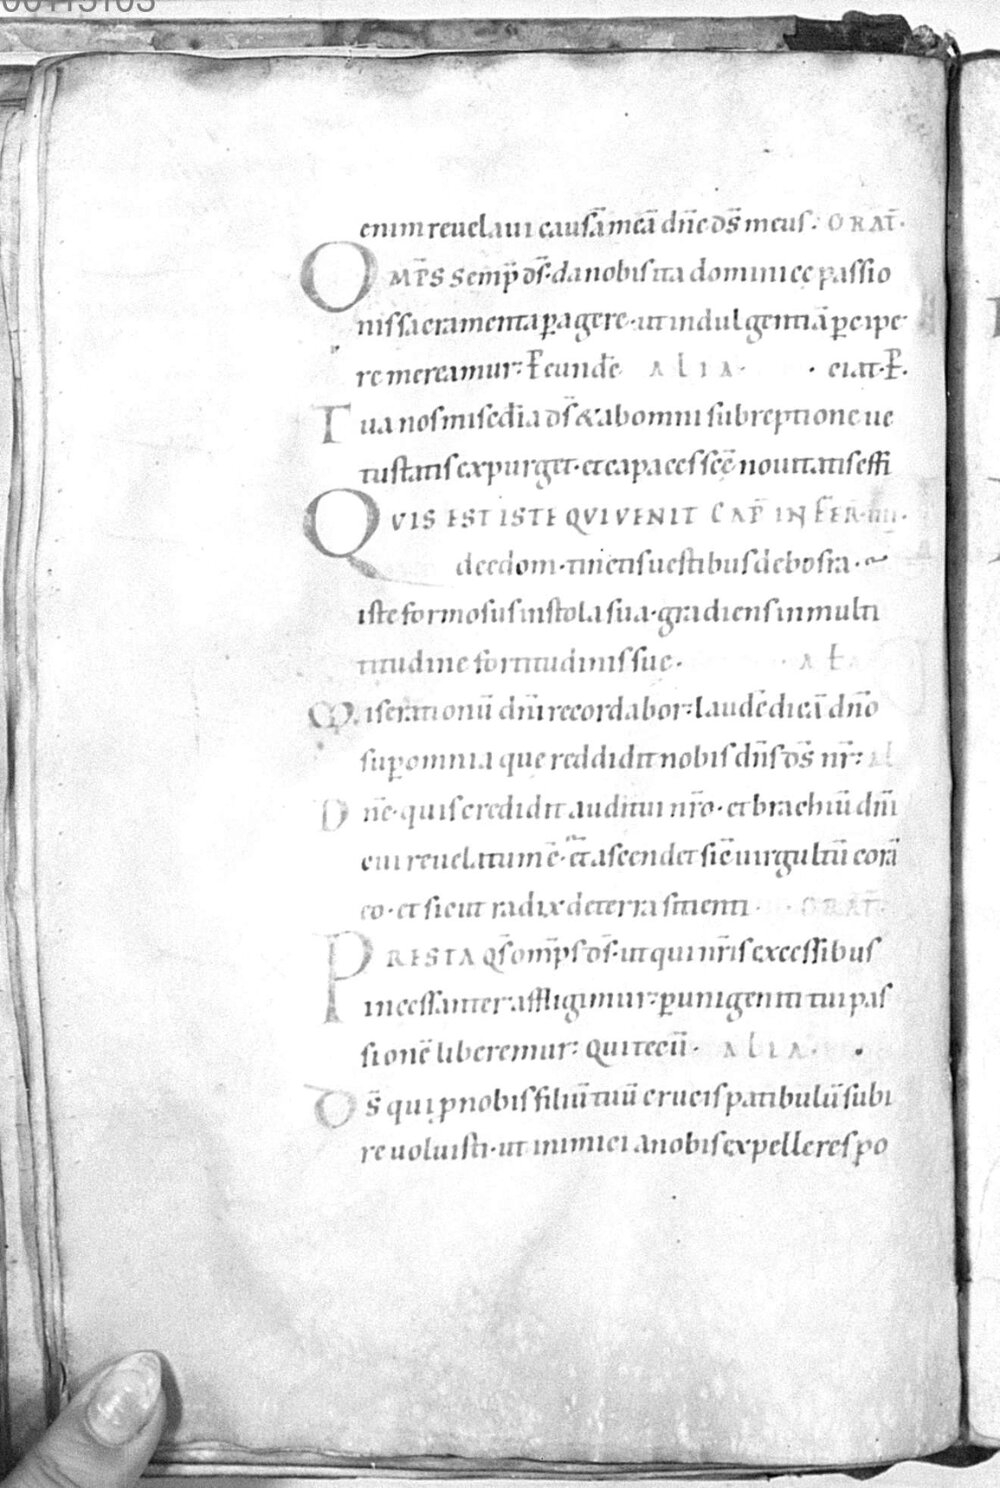 00115103
enim reuelaui causā meā dn̄e ds̄ meus: ORAT̄.
OMP̄S semp̄ ds̄. da nobis ita dominicę passio
nis sacramenta ꝑagere. ut indulgentiā ꝑcipe
re mereamur: P̄ eundē ALIA. eiat. P̄.
Tua nos misedia ds̄ & ab omni subreptione ue
tustatis expurget. et capaces sc̄ę nouitatis effi
QVIS EST ISTE QVI VENIT CAP̄ IN FER. IIII.
de edom. tinctis uestibus de bosra.
iste formosus in stola sua. gradiens in multi
titudine fortitudinis suę. AŁ
Miserationū dn̄i recordabor: laudē dicā dn̄o
suꝑ omnia que reddidit nobis dn̄s ds̄ nr̄: AL
Dn̄e. quis credidit auditui nr̄o. et brachiū dn̄i
cui reuelatum ē. et ascendet sic̄ uirgultū corā
eo. et sicut radix de terra sitienti. ORAT̄
PRESTA qs̄ omp̄s ds̄. ut qui nr̄is excessibus
incessanter affligimur: ꝑ unigeniti tui pas
sionē liberemur: Qui tecū. ALIA.
Ds̄ qui p nobis filiū tuū crucis patibulū subi
re uoluisti. ut inimici a nobis expelleres po